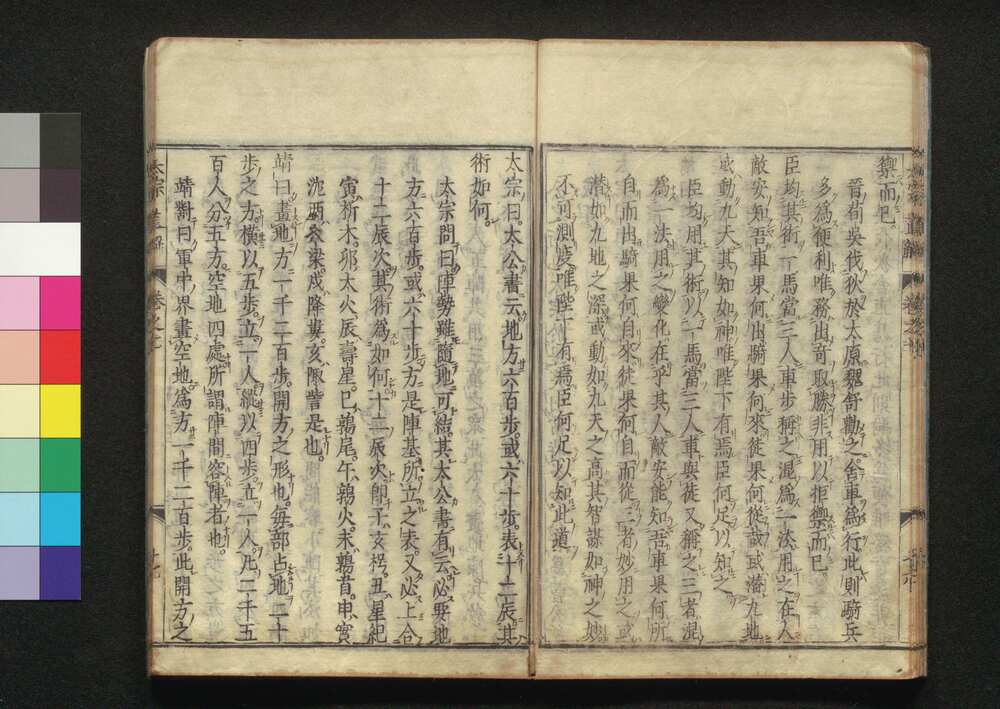 禦而已
晉荀吳伐狄於太原魏舒勸之舍車爲行此則騎兵
多爲便利唯務出奇取勝非用以拒禦而已
臣均其術一馬當三人車步稱之混爲一法用之在人
敵安知吾車果何出騎果何來徒果何從或潛九地
或動九天其知如神唯陛下有焉臣何足以知之
臣均用其術以一馬當三人車與徒又稱之三者混
爲一法用之變化在乎其人敵安能知吾車果何所
自而出騎果何自來徒果何自而從三者妙用之或
潛如九地之深或動如九天之高其智謀如神之妙
不可測度唯陛下有焉臣何足以知此道
太宗曰太公書云地方六百步或六十步表十二辰其
術如何
太宗問曰陣勢雖隨地可結其太公書有云必要地
方六百步或六十步方是陣基所立之表又必上合
十二辰次其術爲如何十二辰次卽子玄枵丑星紀
寅析木卯大火辰壽星巳鶉尾午鶉火未鶉首申實
沈酉大梁戌降婁亥陬訾是也
靖曰畫地方一千二百步開方之形也每部占地二十
步之方橫以五步立一人縱以四步立一人凡二千五
百人分五方空地四處所謂陣間容陣者也
靖對曰軍中界畫空地爲方一千二百步此開方之